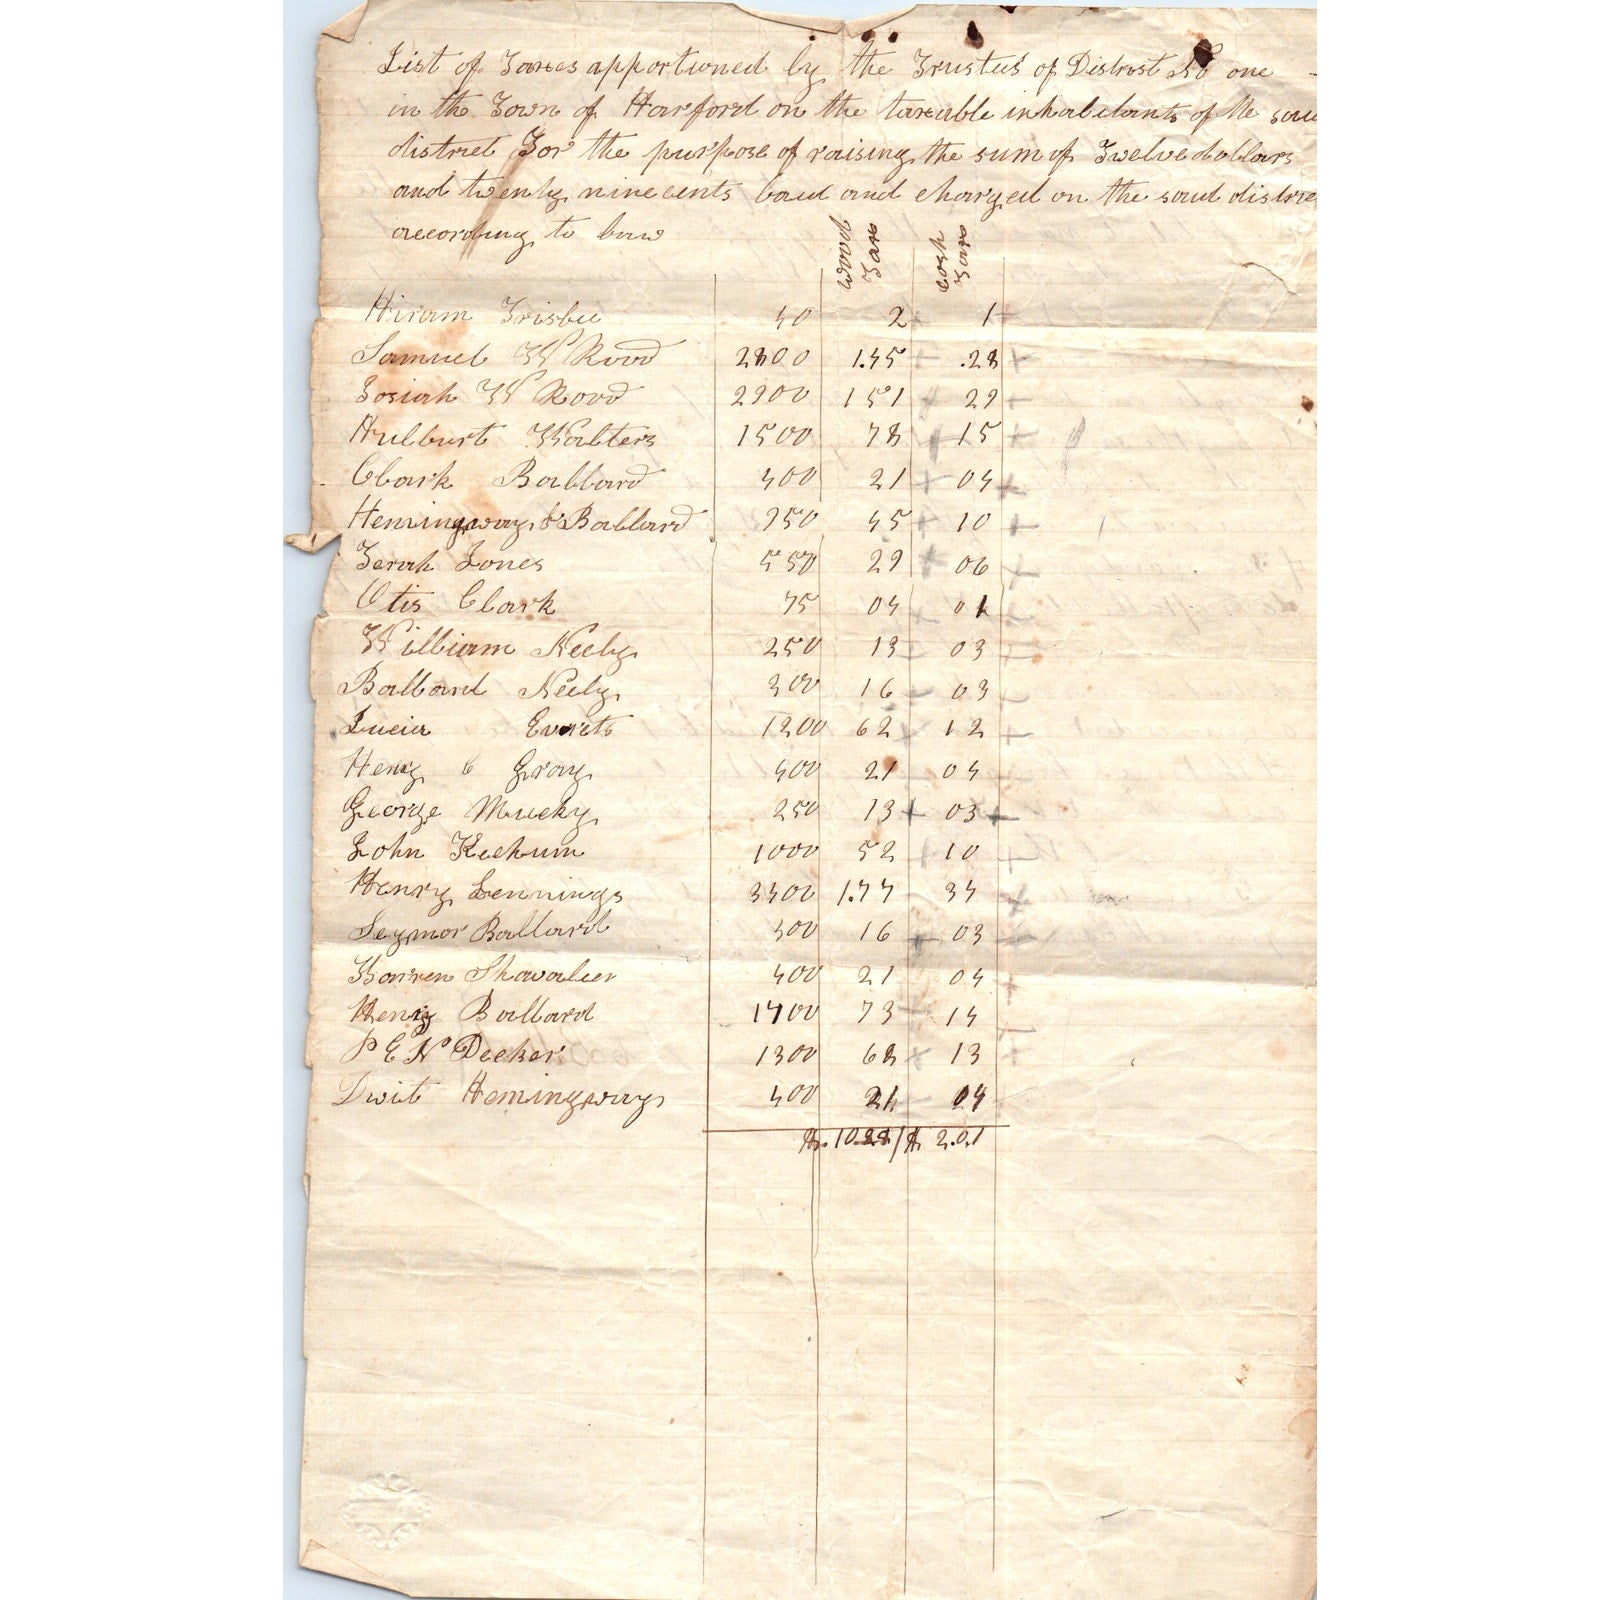 List of Taxes apportioned by the Trustes of District No one
in the Town of Harford on the taxable inhabitants of the said
district For the purpose of raising the sum of Twelve dollars
and twenty nine cents laid and charged on the said distric
according to law
Wood Tax Cash Tax
Hiram Frisbie 40 2 1
Samuel W Rood 2800 1.45 .28
Josiah W Rood 2900 151 29
Hulburt Walters 1500 78 15
Clark Ballard 400 21 04
Hemingway & Ballard 950 45 10
Jerah Jones 550 29 06
Otis Clark 75 04 01
William Neely 250 13 03
Ballard Neely 300 16 03
Lucia Everets 1200 62 12
Henry C Gray 400 21 04
George Mucky 250 13 03
John Kechum 1000 52 10
Henry Jennings 3400 1.77 34
Seymor Ballard 300 16 03
Warren Shavalier 400 21 04
Henry Ballard 1400 73 14
P E H Decker 1300 68 13
Dwit Hemingway 400 21 04
$.10.28 / $ 2.01